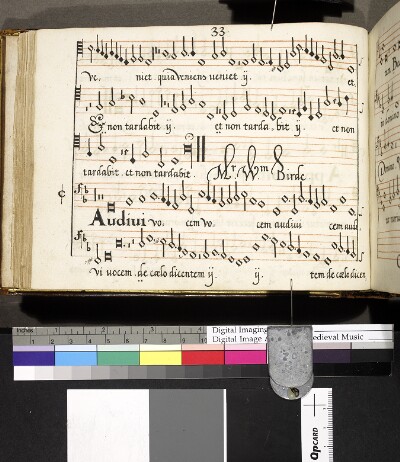 33
ve. niet quia veniens veniet ij. et
Et non tardabit ij. et non tarda. bit ij. et non
tardabit. et non tardabit. Mr. Wm Birde
Audivi vo. cem vo. cem audivi cem audi
vi vocem. de cælo dicentem ij. ij. tem de cælo dicen
inches 1 2 3 4 5 6 7 8 9 10
Digital Imaging
Digital Image Medieval Music
QPCARD